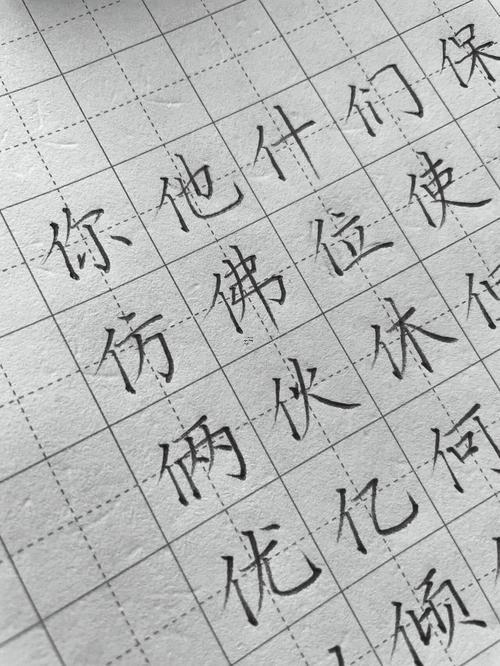 你他什们保
仿佛位使
俩伙休
优亿何
倾